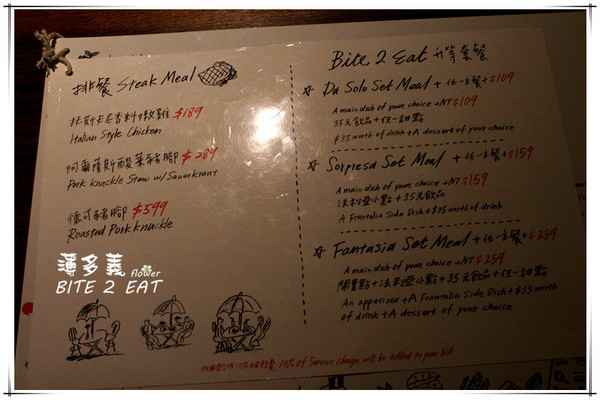 排餐 Steak Meal
托斯卡尼香料嫩雞 $189
Italian Style Chicken
阿爾薩斯酸菜豬腳 $289
Pork Knuckle Stew w/ Sauerkraut
德式豬腳 $599
Roasted Pork Knuckle
薄多義 flower
BITE 2 EAT
Bite 2 Eat 升等套餐
☆ Da Solo Set Meal + 任一主餐+$109
A main dish of your choice +NT$109
35元飲品+任一甜點
$35 worth of drink+A dessert of your choice
☆ Sorpresa Set Meal + 任一主餐+$159
A main dish of your choice +NT$159
法利亞小點+35元飲品
A Frantalia Side Dish+$35 worth of drink
☆ Fantasia Set Meal +任一主餐+$259
A main dish of your choice +NT$259
開胃點+法利亞小點+35元飲品+任一甜點
An appetizer+A Frantalia Side Dish+$35 worth
of drink+A dessert of your choice
10% of Service Charge will be added to your bill